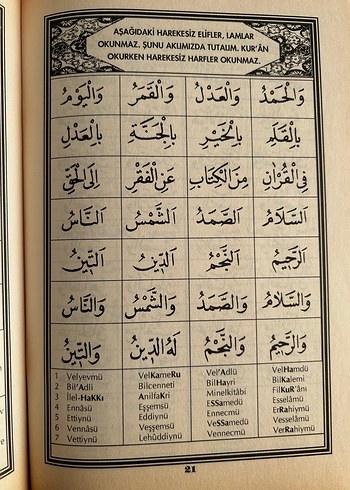 AŞAĞIDAKİ HAREKESİZ ELİFLER, LAMLAR
OKUNMAZ. ŞUNU AKLIMIZDA TUTALIM. KUR'ÂN
OKURKEN HAREKESİZ HARFLER OKUNMAZ.
وَالْحَمْدُ وَالْعَدْلُ وَالْقَمَرُ وَالْيَوْمُ
بِالْقَلَمِ بِالْخَيْرِ بِالْجَنَّةِ بِالْعَدْلِ
فِى الْقُرْاٰنِ مِنَ الْكِتَابِ عَنِ الْفَقْرِ اِلَى الْحَقِّ
اَلسَّلَامُ اَلصَّمَدُ اَلشَّمْسُ اَلنَّاسُ
اَلرَّحِيمُ اَلنَّجْمُ اَلدِّينُ اَلتِّينُ
وَالسَّلَامُ وَالصَّمَدُ وَالشَّمْسُ وَالنَّاسُ
وَالرَّحِيمُ وَالنَّجْمُ لَهُ الدِّينُ وَالتِّينُ
1 Velyevmü VelKameRu Vel'Adlü VelHamdü
2 Bil'Adli Bilcenneti BilHayri BilKalemi
3 İlel-HaKKı AnilfaKri Minelkitâbi FilKuR'âni
4 Ennâsü Eşşemsü ESSamedü Esselâmü
5 Ettiynü Eddiynü Ennecmü ErRahiymü
6 Vennâsü Veşşemsü VeSSamedü Vesselâmü
7 Vettiynü Lehûddiynü Vennecmü VerRahiymü
21